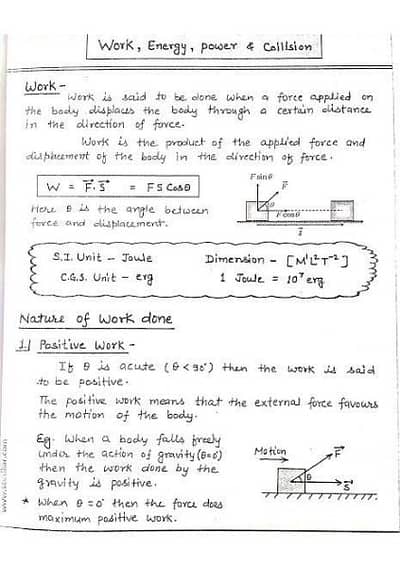 Work, Energy, power & Collision
Work -
Work is said to be done when a force applied on
the body displaces the body through a certain distance
in the direction of force.
Work is the product of the applied force and
displacement of the body in the direction of force.
W = F⃗.S⃗ = FS Cosθ
Here θ is the angle between
force and displacement.
F sinθ
F⃗
θ
F cosθ
s⃗
S.I. Unit - Joule
Dimension - [M¹L²T⁻²]
C.G.S. Unit - erg
1 Joule = 10⁷ erg
Nature of Work done
1.) Positive Work -
If θ is acute (θ < 90°) then the work is said
to be positive.
The positive work means that the external force favours
the motion of the body.
Eg. When a body falls freely
under the action of gravity (θ=0°)
then the work done by the
gravity is positive.
* When θ = 0° then the force does
maximum positive work.
Motion
F⃗
θ
S⃗